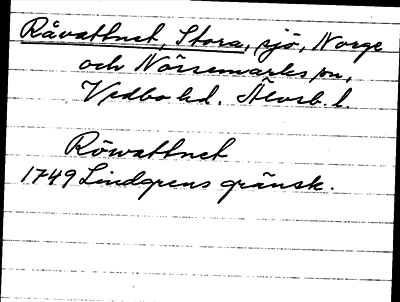 Råvattnet, Stora, sjö, Norge
och Nössemarks sn,
Vedbo hd. Älvsb. l.
Röwattnet
1749 Lindgrens gränsk.